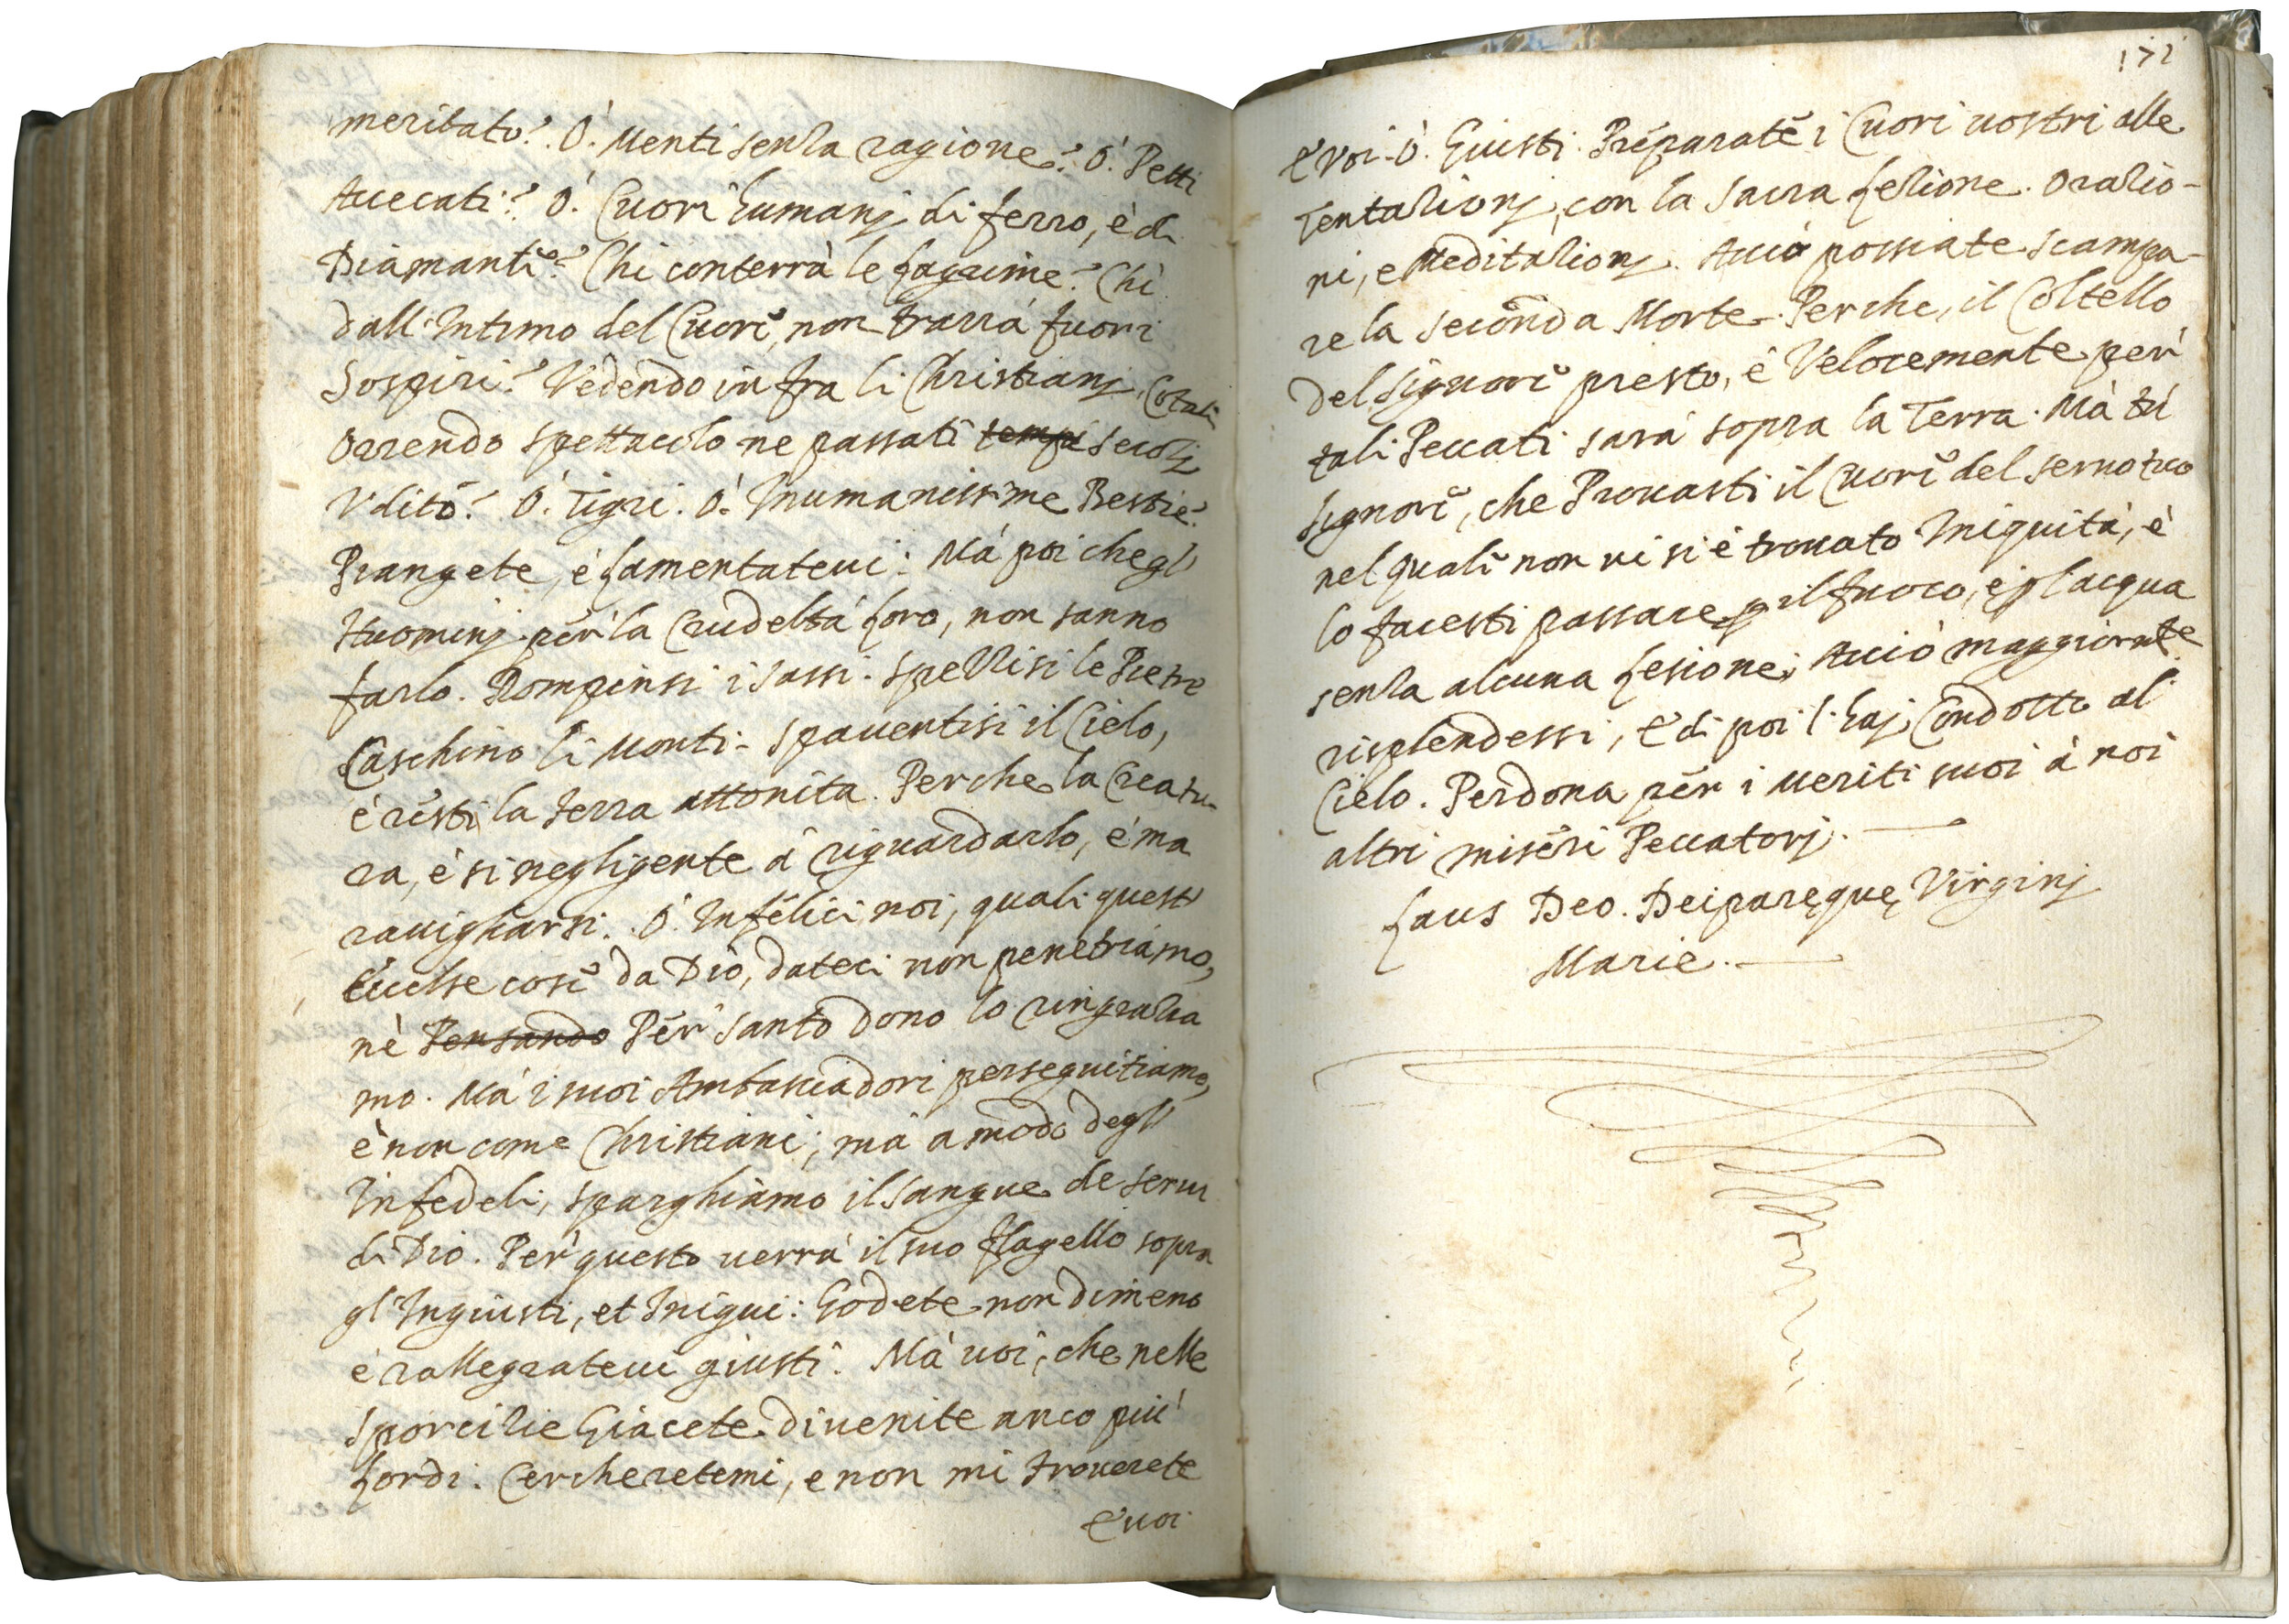 meritato? Ó. Menti senza ragione? Ó. Petti
Accecati? Ó. Cuori humanj di ferro, è di
Diamanti? Chi conterrà le Lagrime? Chi
dall'Intimo del Cuore, non trarrà fuori
Sospiri? Vedendo in fra li Christianj, Cotali
orrendo spettacolo ne passati tempi secolj
Vdito? Ó. Tigri. Ó. Inumanissime Bestie?
Piangete, è Lamentateui: Mà poi che gl'
Huominj per la Crudeltà Loro, non sanno
farlo. Rompinsi i sassi. Spezzisi le Pietre
Caschino li Monti. Spauentisi il Cielo,
è resti la terra attonita. Perche la Creatu-
ra, è si negligente à riguardarlo, è ma
rauigliarsi. Ó. Infelici noi, quali queste
Eccelse cose da Dio, dateci non penetriamo,
nè Pensando Per santo dono lo ringratia
mo. Mà i suoi Ambasciadori perseguitiamo,
è non come Christiani, mà a modo degl'
Infedeli, sparghiamo il sangue de serui
di Dio. Per questo uerrà il suo flagello sopra
gl'Ingiusti, et Iniqui: Godete non dimeno
è rallegrateui giusti. Mà uoi, che nelle
sporcizie Giacete diuenite anco più
Lordi. Cercheretemi, e non mi trouerete
E uoi
171
E voi. Ó. Giusti. Preparate i Cuori uostri alle
Tentazionj, con la Sacra Lezione. Orazio-
ni, e Meditazionj. Acciò possiate scampa-
re la seconda Morte. Perche, il Coltello
del Signore presto, è Velocemente per
tali Peccati sarà sopra la Terra. Mà tú
Signore, che Prouasti il Cuore del seruo tuo
nel quale non ui si è trouato Iniquità, è
lo facesti passare p il fuoco, è p l'acqua
senza alcuna Lesione, Acciò maggiormte
risplendessi, E di poi l'haj Condotto al
Cielo. Perdona per i meriti suoi à noi
altri miseri Peccatorj.
Laus Deo. Deiparęquę Virginj
Marie.